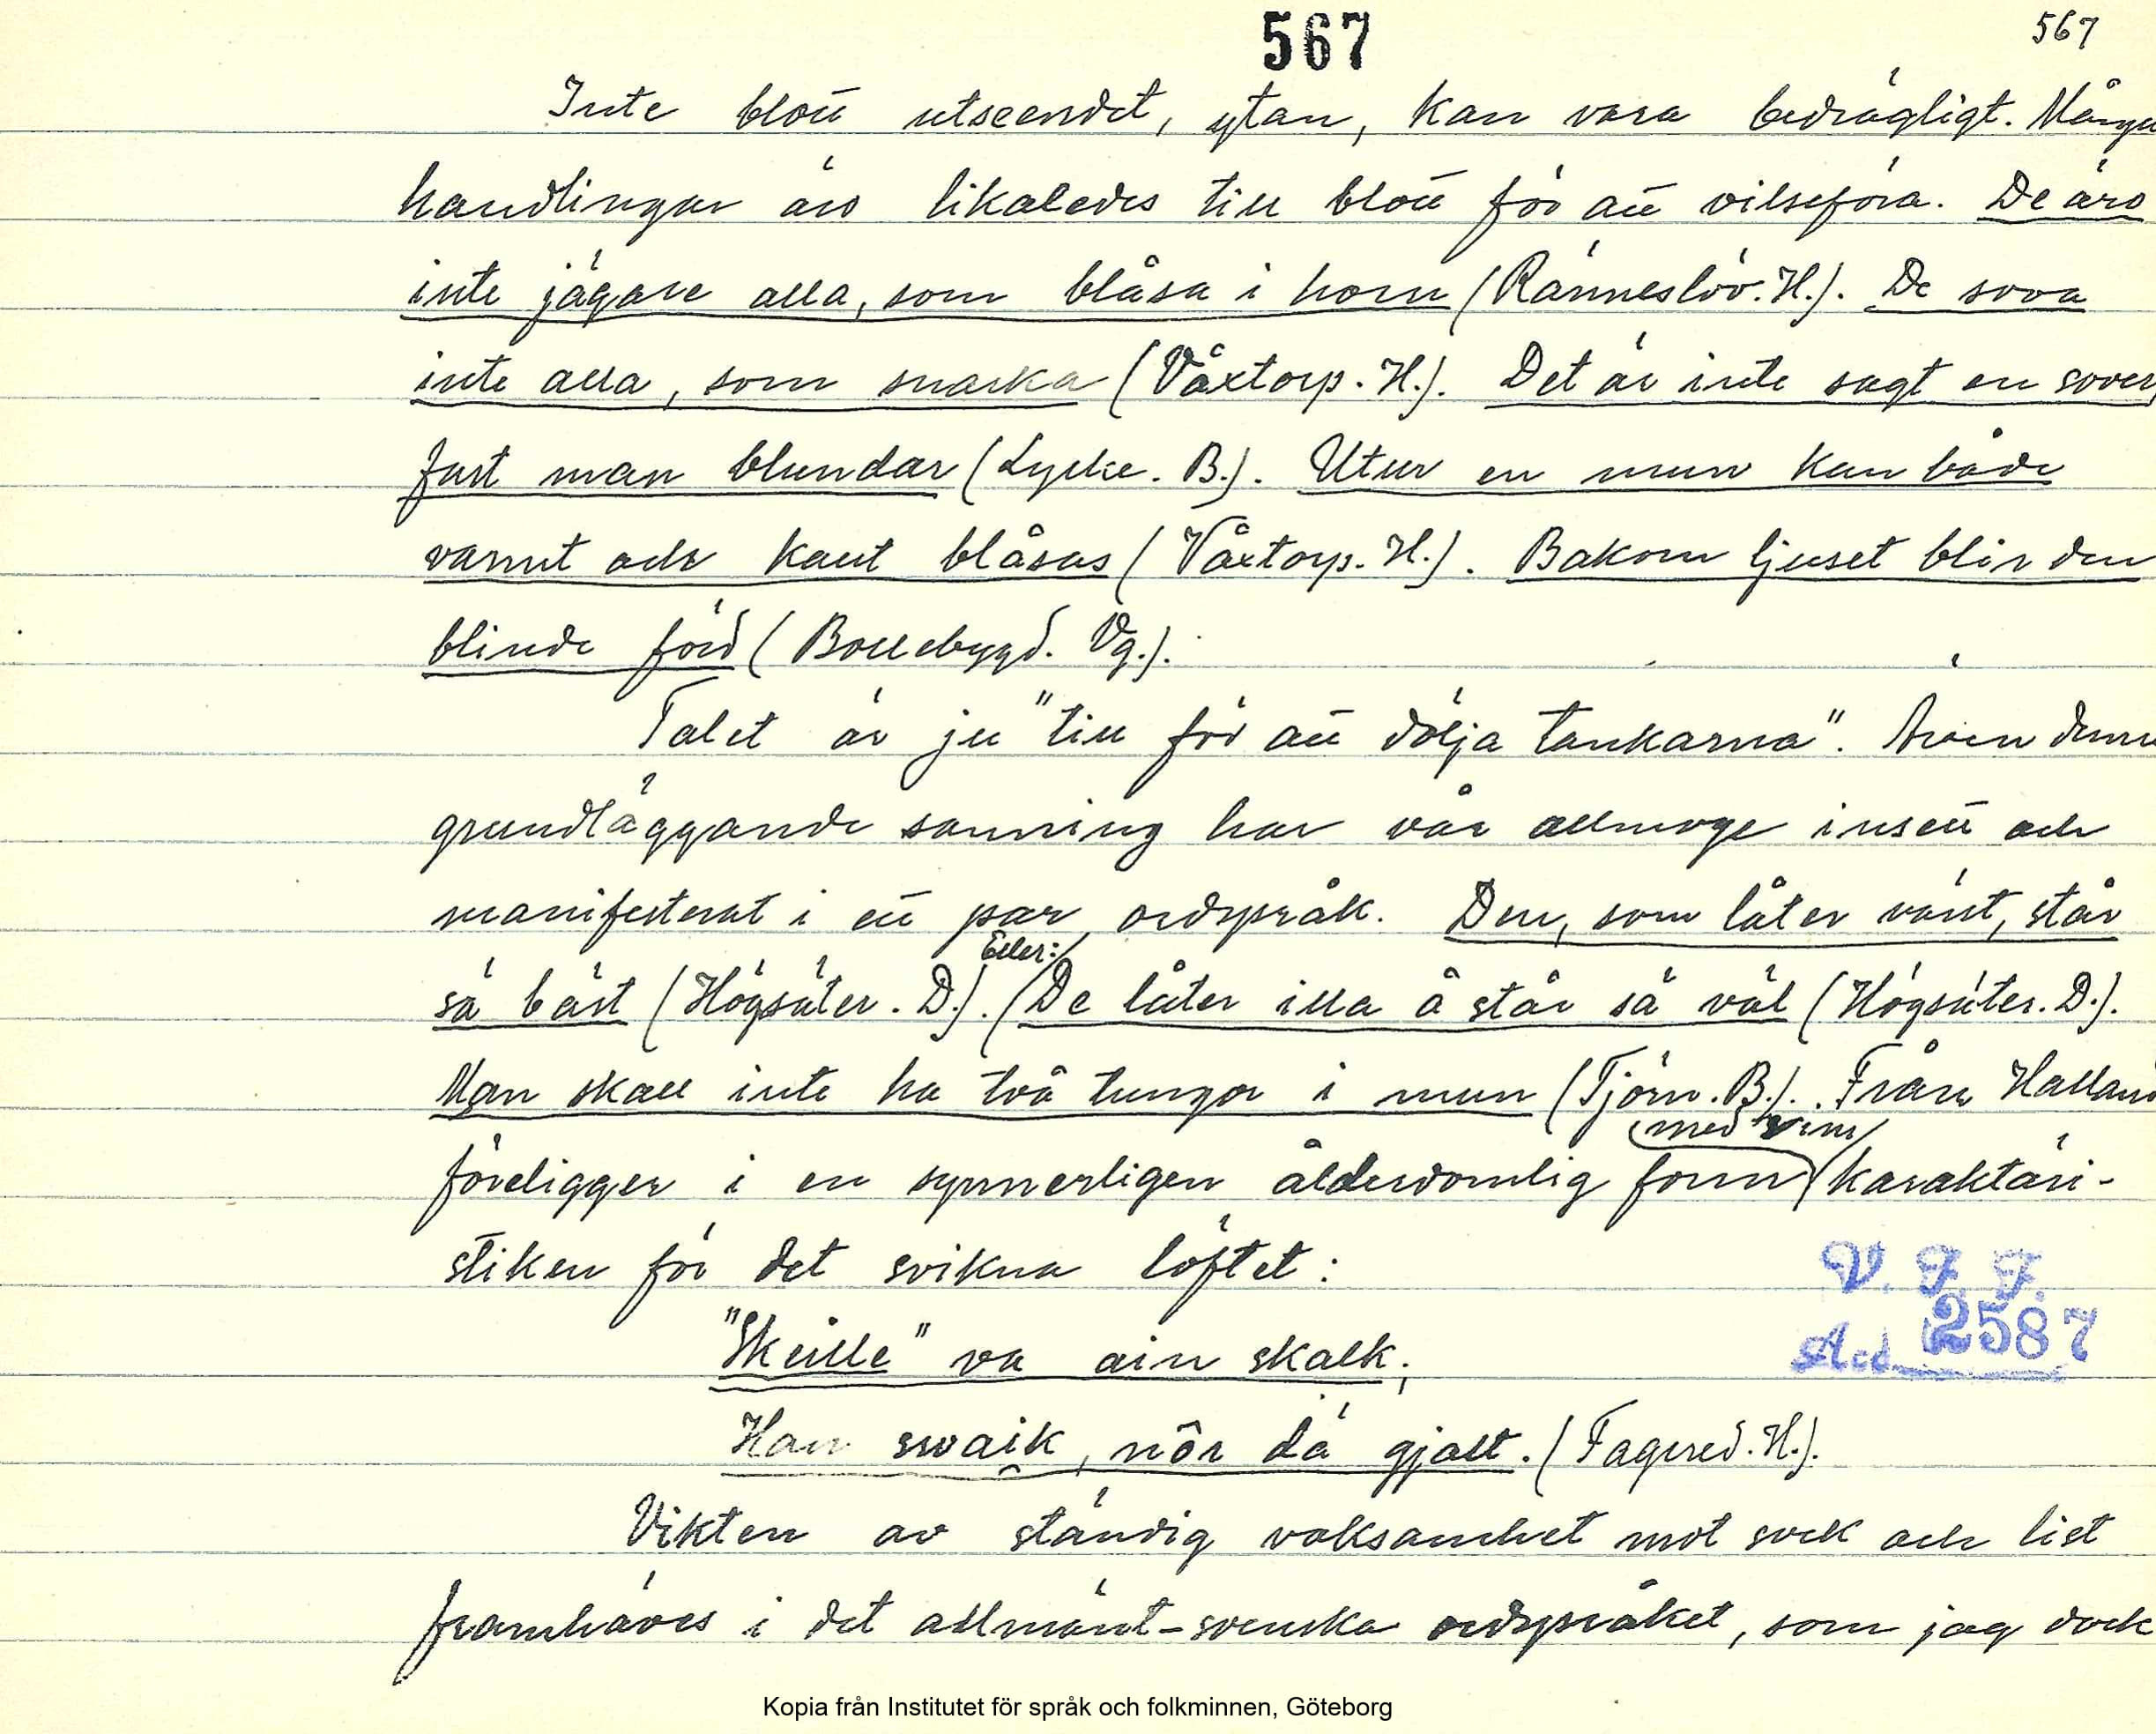 567
567
Inte blott utseendet, ytan, kan vara bedrägligt. Många
handlingar äro likaledes till blott för att vilseföra. De äro
inte jägare alla, som blåsa i horn (Ränneslöv. H.). De sova
inte alla, som snarka (Våxtorp. H.). Det är inte sagt en sover,
fast man blundar (Lycke. B.). Utur en mun kan både
varmt och kallt blåsas (Våxtorp. H.). Bakom ljuset blir den
blinde förd (Bollebygd. Vg.).
Talet är ju "till för att dölja tankarna". Även denna
grundläggande sanning har vår allmoge insett och
manifesterat i ett par ordspråk. Den, som låter värst, står
Eller:
sä bäst (Högsäter. D.). De låter illa å står sä väl (Högsäter. D.).
Man skall inte ha två tungor i mun (Tjörn. B.). Från Halland
med rim
föreligger i en synnerligen ålderdomlig form karaktäri-
stiken för det svikna löftet:
V. F. F.
"Skulle" va ain skalk;
Acc. 2587
Han swaik, nôr dä gjallt. (Fagered. H.).
Vikten av ständig vaksamhet mot svek och list
framhäves i det allmänt-svenska ordspråket, som jag dock
Kopia från Institutet för språk och folkminnen, Göteborg